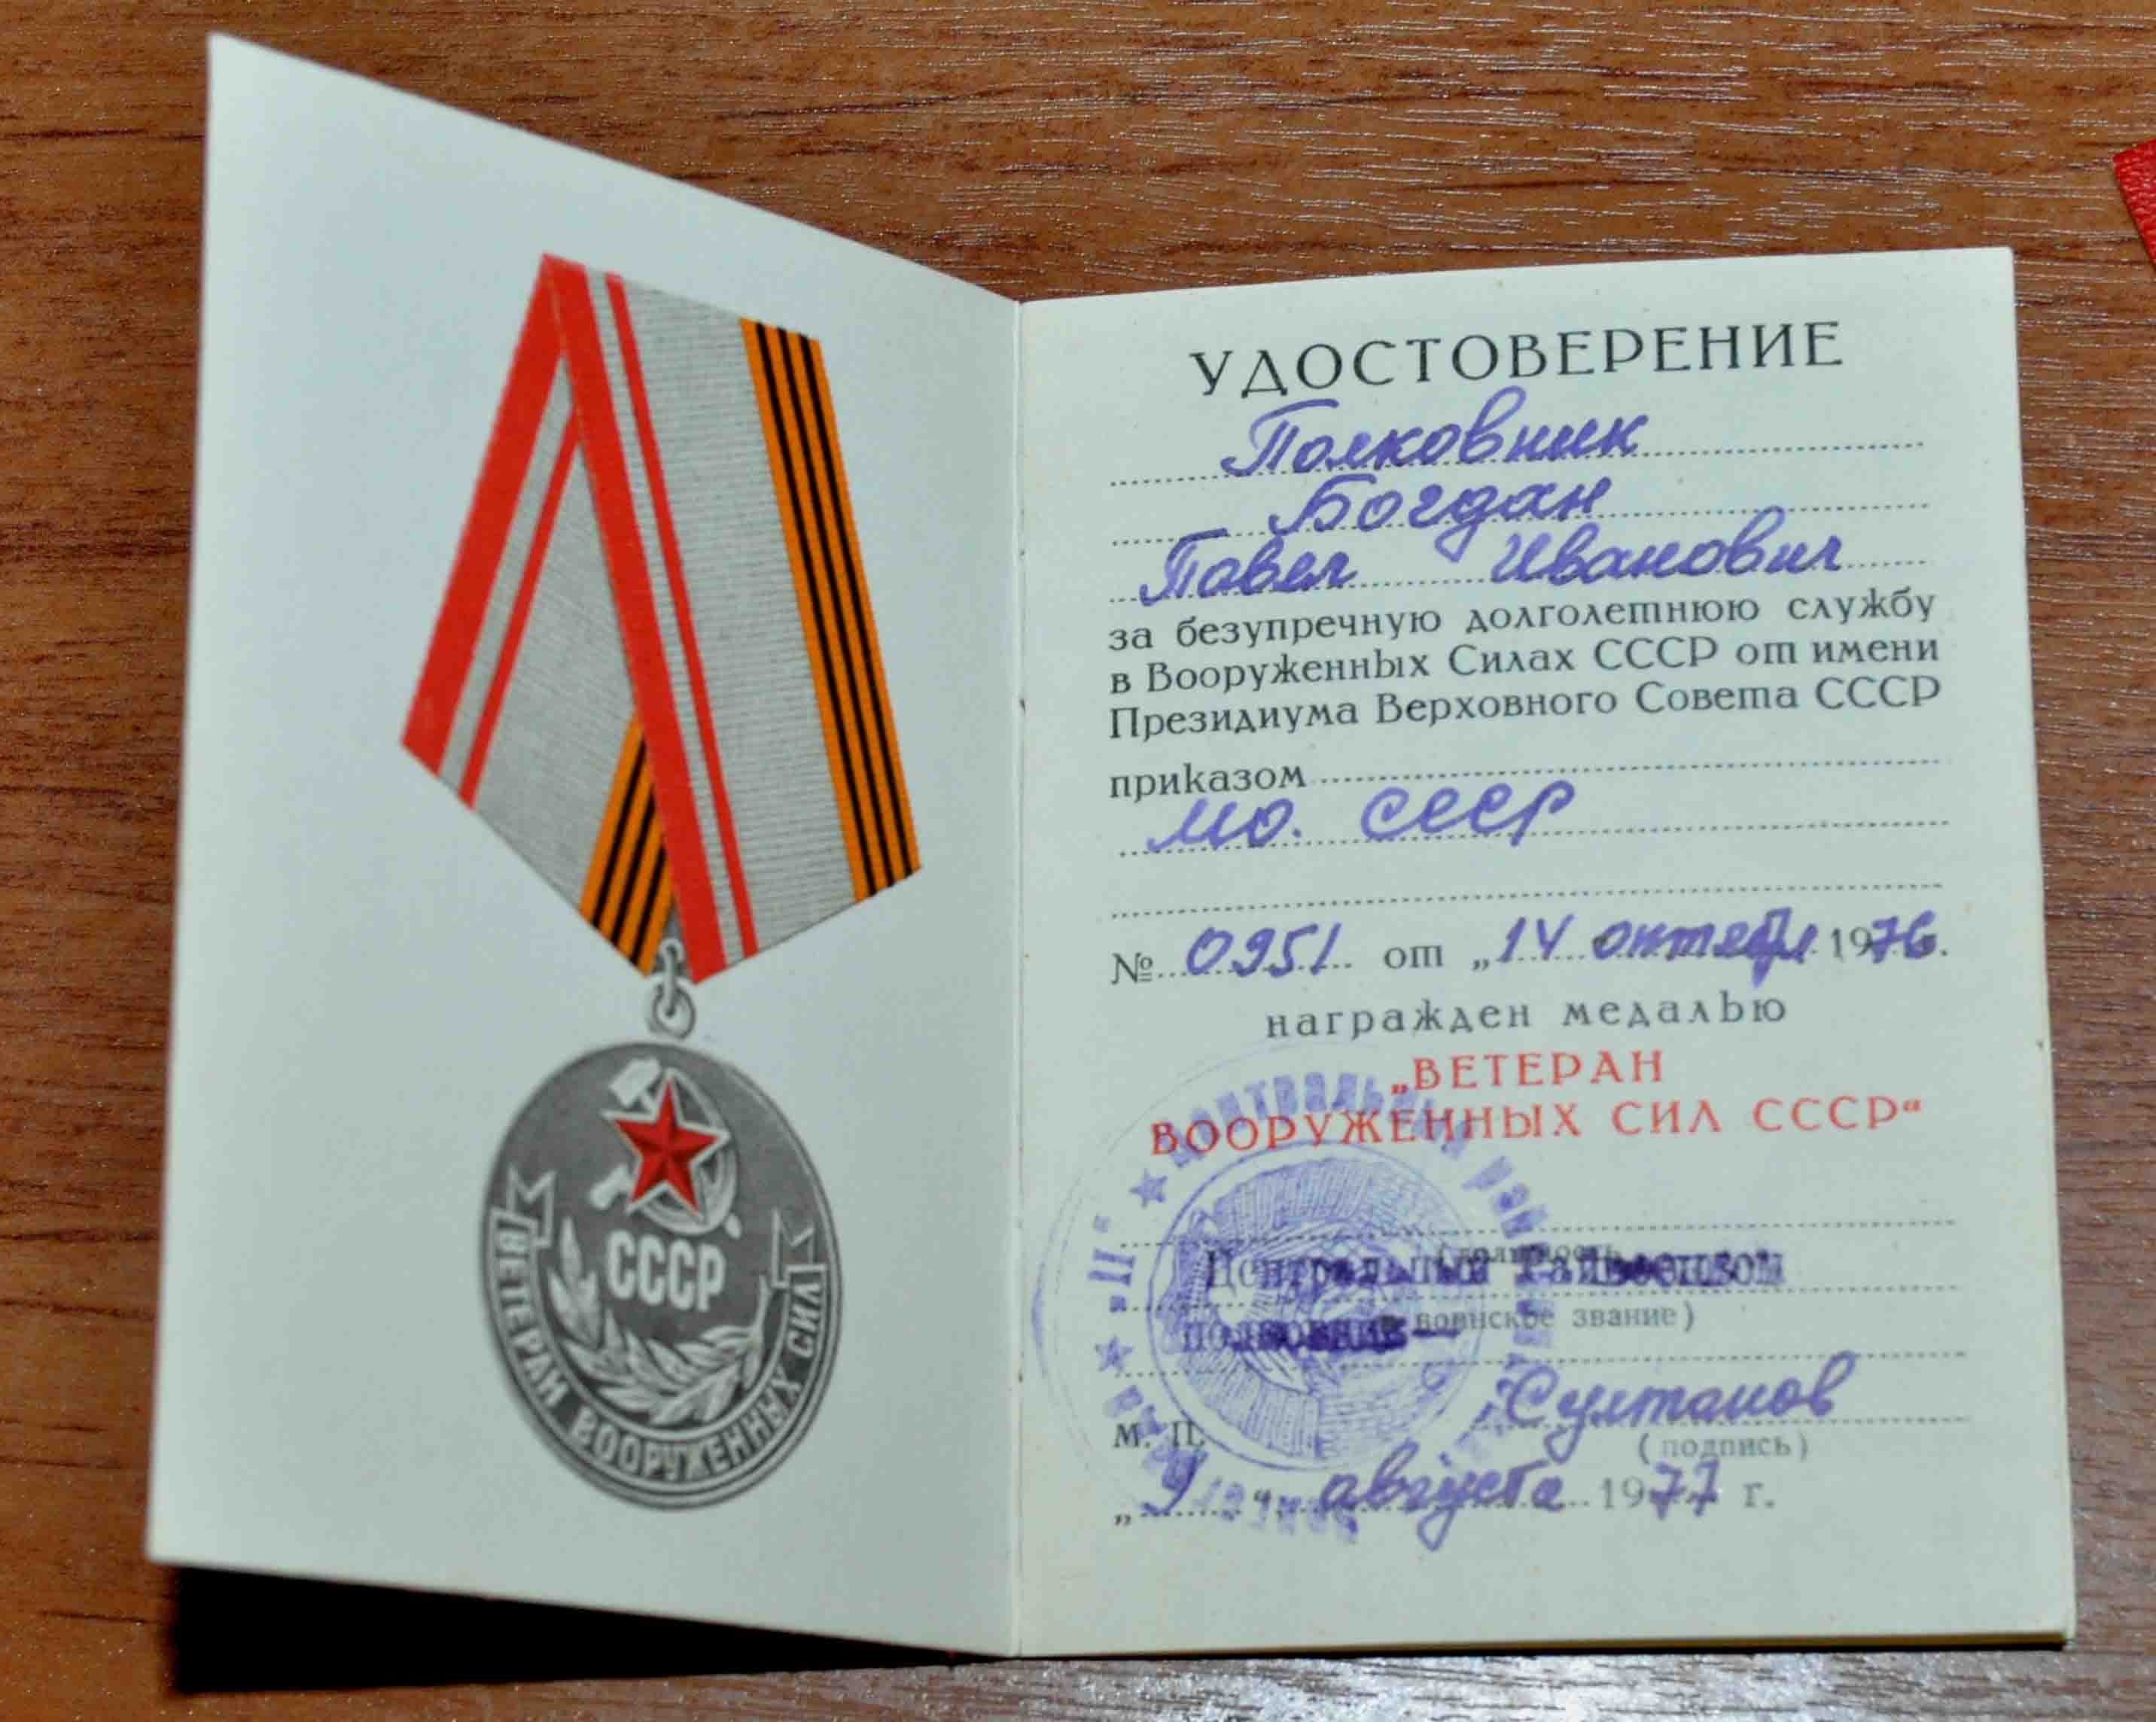 СССР
ВЕТЕРАН ВООРУЖЕННЫХ СИЛ
УДОСТОВЕРЕНИЕ
Полковник
Богдан
Павел Иванович
за безупречную долголетнюю службу
в Вооруженных Силах СССР от имени
Президиума Верховного Совета СССР
приказом
МО. СССР
№ 0951 от „14 октября 1976.
награжден медалью
„ВЕТЕРАН
ВООРУЖЕННЫХ СИЛ СССР“
(должность
Центральный Райвоенком
воинское звание)
полковник
Султанов
М. П.
(подпись)
„9“ августа 1977 г.